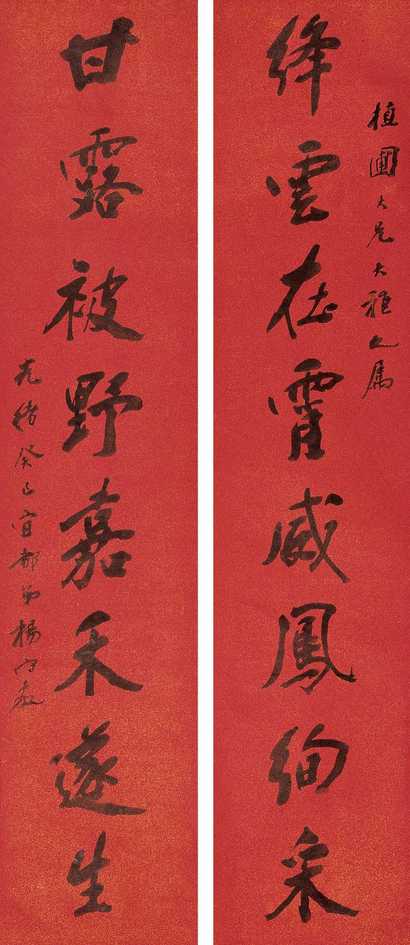 植圃大兄大雅之属
絳雲在霄威鳳絢采
甘露被野嘉禾遂生
光緒癸巳宜都弟楊守敬